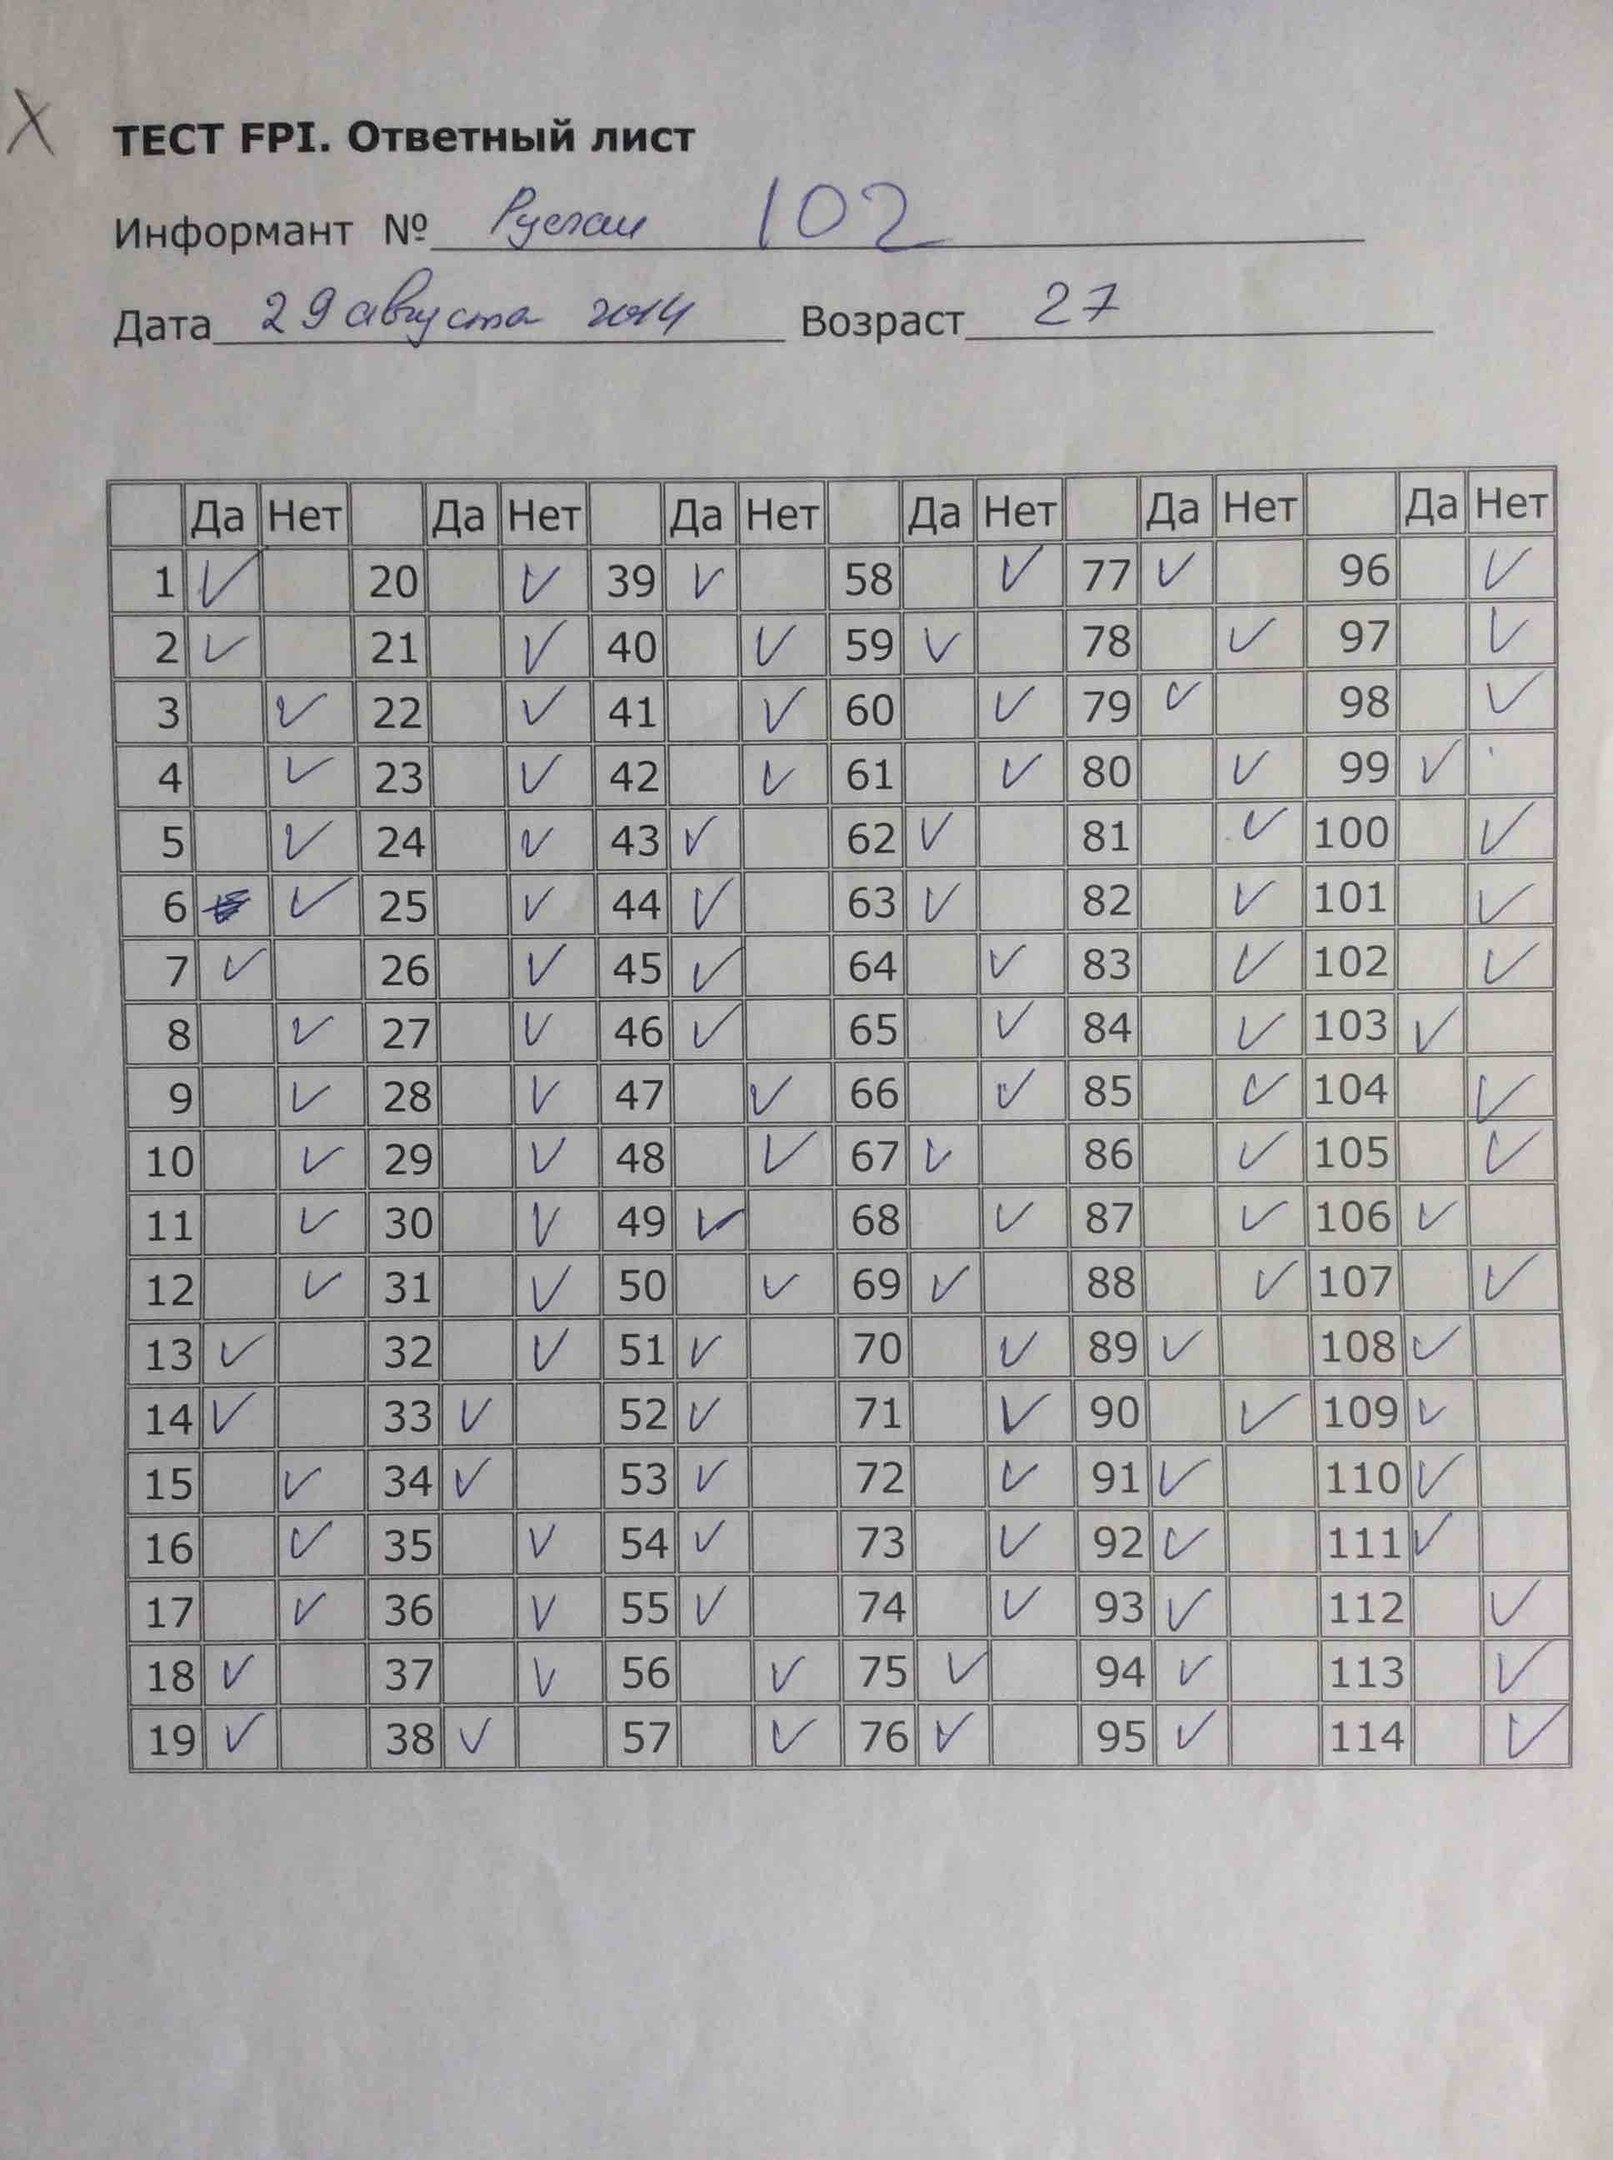 X
ТЕСТ FPI. Ответный лист
Информант № Руслан 102
Дата 29 августа 2014 Возраст 27
Да Нет Да Нет Да Нет Да Нет Да Нет Да Нет
1 ✓ 20 ✓ 39 ✓ 58 ✓ 77 ✓ 96 ✓
2 ✓ 21 ✓ 40 ✓ 59 ✓ 78 ✓ 97 ✓
3 ✓ 22 ✓ 41 ✓ 60 ✓ 79 ✓ 98 ✓
4 ✓ 23 ✓ 42 ✓ 61 ✓ 80 ✓ 99 ✓
5 ✓ 24 ✓ 43 ✓ 62 ✓ 81 ✓ 100 ✓
6 ✓ 25 ✓ 44 ✓ 63 ✓ 82 ✓ 101 ✓
7 ✓ 26 ✓ 45 ✓ 64 ✓ 83 ✓ 102 ✓
8 ✓ 27 ✓ 46 ✓ 65 ✓ 84 ✓ 103 ✓
9 ✓ 28 ✓ 47 ✓ 66 ✓ 85 ✓ 104 ✓
10 ✓ 29 ✓ 48 ✓ 67 ✓ 86 ✓ 105 ✓
11 ✓ 30 ✓ 49 ✓ 68 ✓ 87 ✓ 106 ✓
12 ✓ 31 ✓ 50 ✓ 69 ✓ 88 ✓ 107 ✓
13 ✓ 32 ✓ 51 ✓ 70 ✓ 89 ✓ 108 ✓
14 ✓ 33 ✓ 52 ✓ 71 ✓ 90 ✓ 109 ✓
15 ✓ 34 ✓ 53 ✓ 72 ✓ 91 ✓ 110 ✓
16 ✓ 35 ✓ 54 ✓ 73 ✓ 92 ✓ 111 ✓
17 ✓ 36 ✓ 55 ✓ 74 ✓ 93 ✓ 112 ✓
18 ✓ 37 ✓ 56 ✓ 75 ✓ 94 ✓ 113 ✓
19 ✓ 38 ✓ 57 ✓ 76 ✓ 95 ✓ 114 ✓